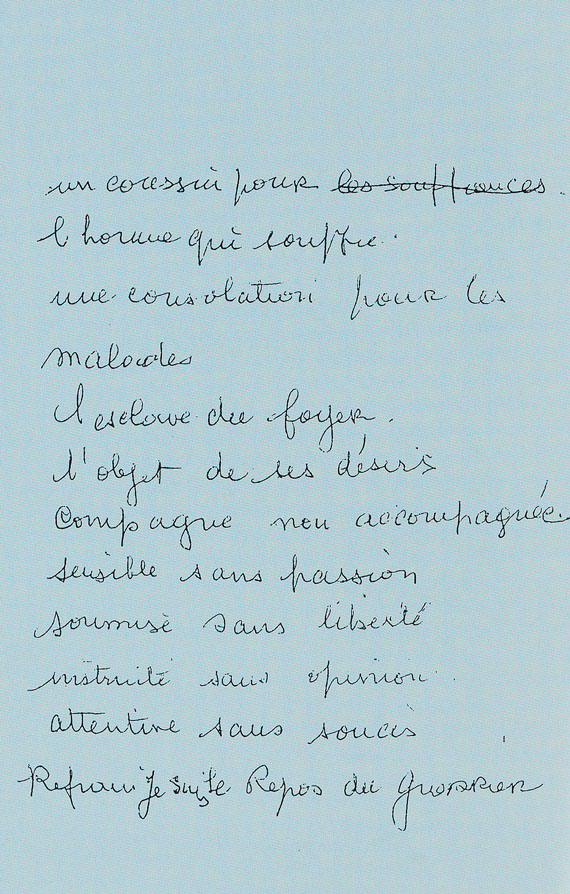 un coussin pour les souffrances
l'homme qui souffre.
une consolation pour les
malades
l'esclave du foyer.
l'objet de ses désirs
Compagne non accompagnée.
sensible sans passion
soumise sans liberté
instruite sans opinion.
attentive sans soucis
Refrain Je suis le Repos du guerrier